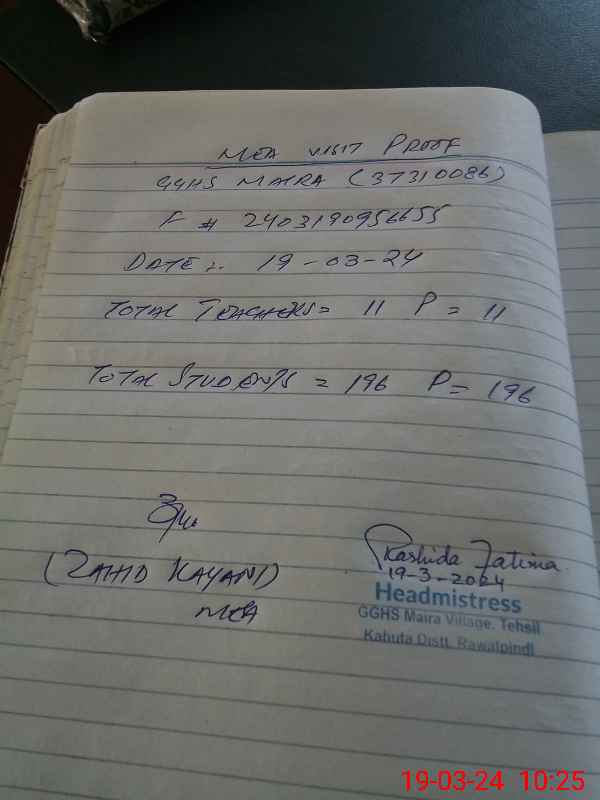 MEA VISIT PROOF
GGHS MAIRA (37310086)
F # 2403190956655
DATE:. 19-03-24
TOTAL TEACHERS = 11 P = 11
TOTAL STUDENTS = 196 P = 196
(ZAHID KAYANI)
MEA
Rashida Fatima.
19-3-2024
Headmistress
GGHS Maira Village, Tehsil
Kahuta Distt. Rawalpindi
19-03-24 10:25